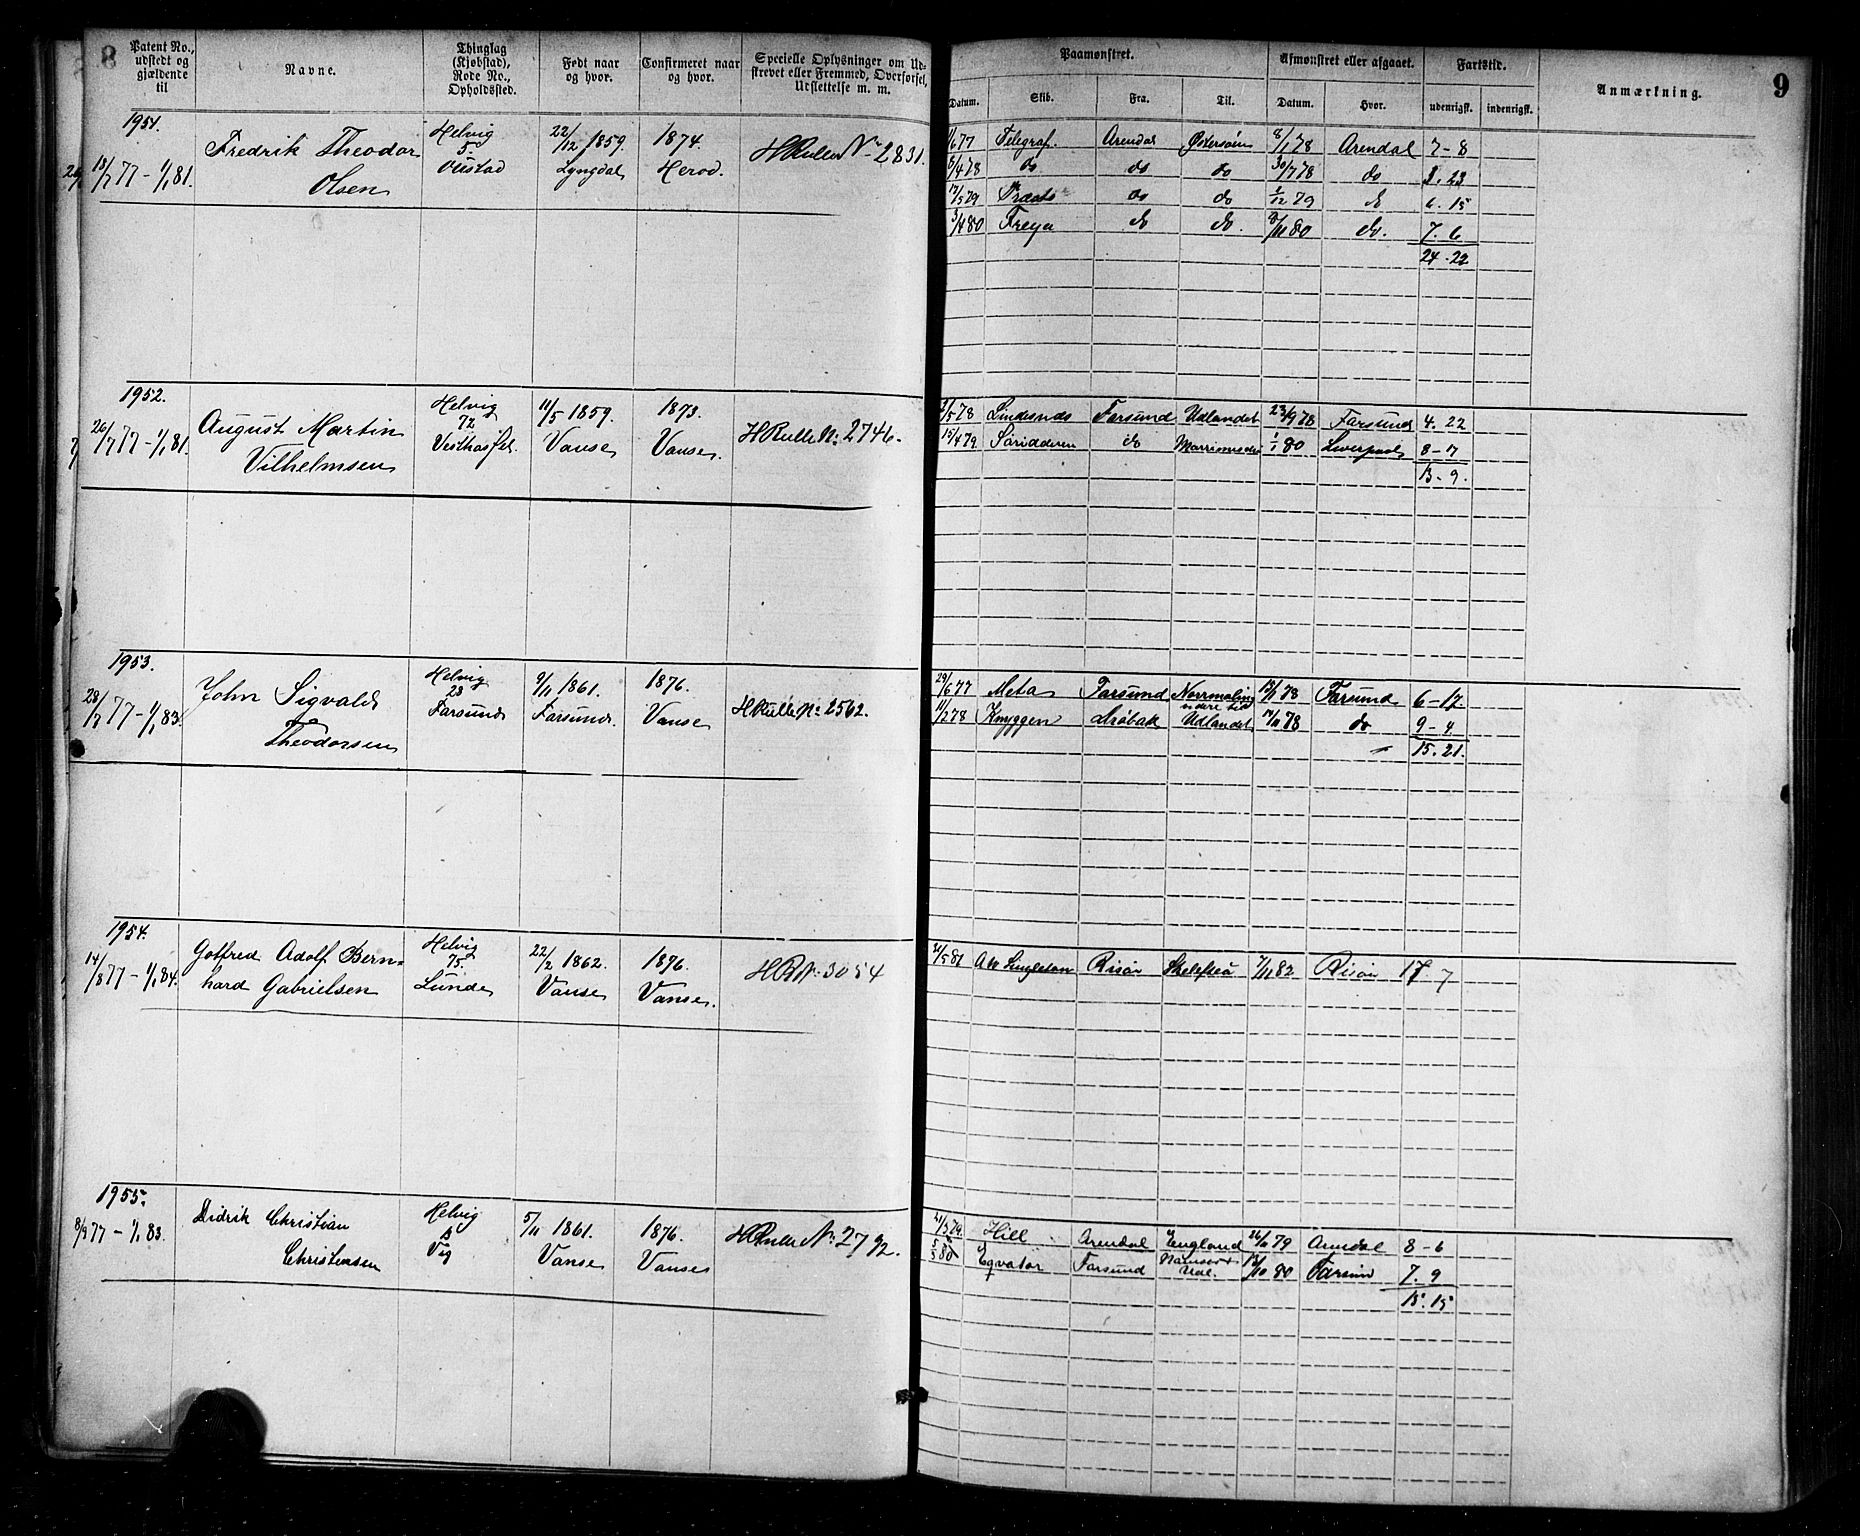 8
Patent No., udstedt og gjældende til
Navne.
Thinglag (Kjøbstad), Rode No., Opholdssted.
Født naar og hvor.
Confirmeret naar og hvor.
Specielle Oplysninger om Udskrevet eller Fremmed, Overførsel, Udslettelse m. m.
Paamønstret.
Afmønstret eller afgaaet.
Fartstid.
Anmærkning.
9
Datum.
Skib.
Fra.
Til.
Datum.
Hvor.
udenrigsk.
indenrigsk.
1951.
18/7 77 - 1/1 81.
Fredrik Theodor
Olsen
Helvig
5.
22/12 1859.
Lyngdal
1874.
Herod.
HRulle No 2831.
Telegraf. Arendal Østersøen 8/1 78 Arendal 7-8
6/4 78 do do do 30/7 78 do 3. 23
do do 1/12 79 do 6. 15
3/4 80 Freya do do. 8/11 80 do. 7. 6
24. 22
1952.
26/7 77 - 1/1 81.
August Martin
Vilhelmsen
Helvig
72
11/5 1859.
Vanse
1873.
Vanse.
HRulle No 2746.
Lindesnæs Farsund Udlandet 23/9 78 Farsund 4. 22
15/4 79. do 1/1 80 Liverpool 8-17
13. 9.
1953.
28/7 77 - 1/1 83.
John Sigvald
Theodorsen
Helvig
23
Farsund
9/11 1861.
Farsund.
1876.
Vanse
HRulle No 2562.
29/6 77 Meta Farsund Farsund 6-17
11/2 78 Knyggen Drøbak Udlandet 14/11 78 do 9-4
15. 21.
1954.
14/8 77 - 1/1 84.
Gotfred Adolf Bern=
hard Gabrielsen
Helvig
75
Lunde
22/2 1862.
Vanse
1876.
Vanse.
HR No 3054
Risør Skelefteå 7/11 82 Risør 17 7
1955.
8/9 77 - 1/1 83.
Didrik Christian
Christensen
Helvig
Vig
5/11 1861.
Vanse
1876.
Vanse
HRulle No 2792.
Hill Arendal England 26/11 79 Arendal 8-6
5/3 80 Eqvator Farsund Udl. 13/10 80 Farsund 7. 9
15. 15